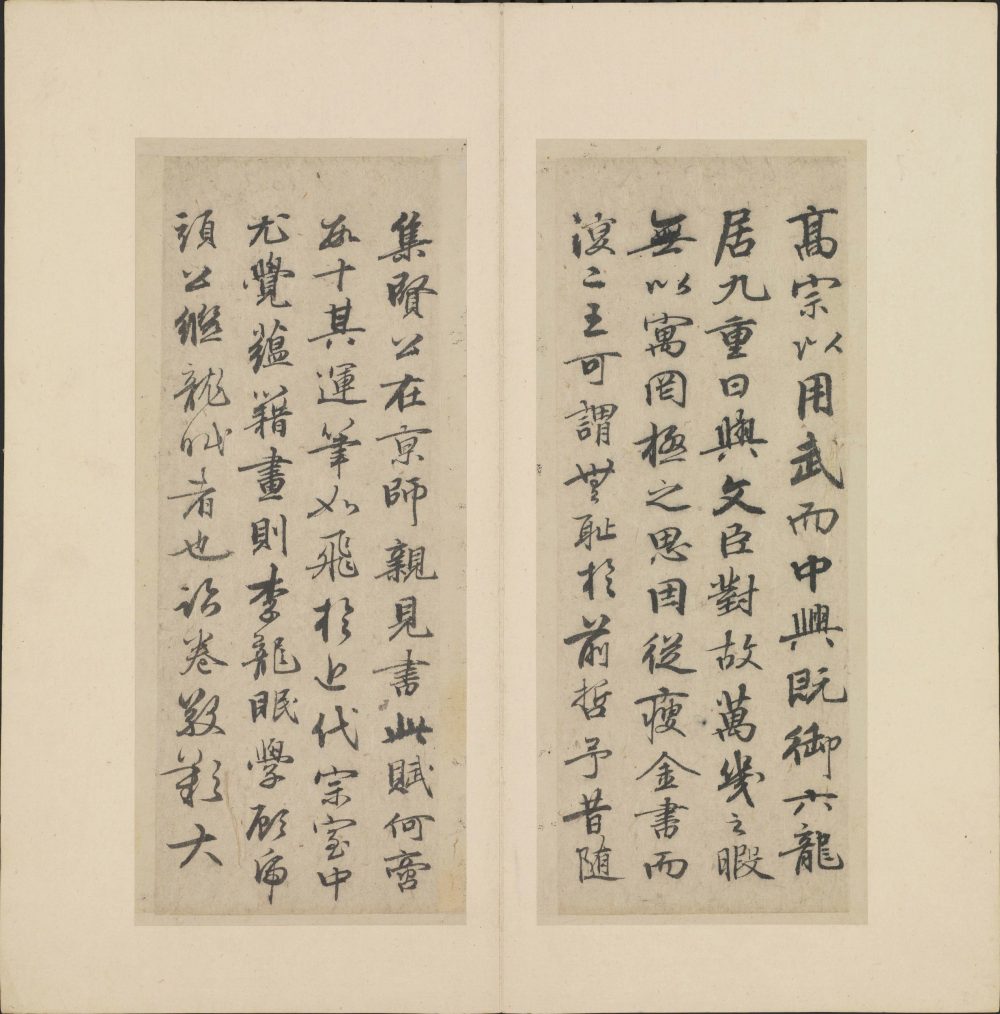 高宗以用武而中興既御六龍
居九重日與文臣對故萬幾之暇
無以寓罔極之思因從瘦金書而
復二王可謂無恥於前哲予昔隨
集賢公在京師親見書此賦何啻
數十其運筆如飛於近代宗室中
尤覺蘊藉畫則李龍眠學顧虎
頭公繼龍眠者也詠卷數歎大